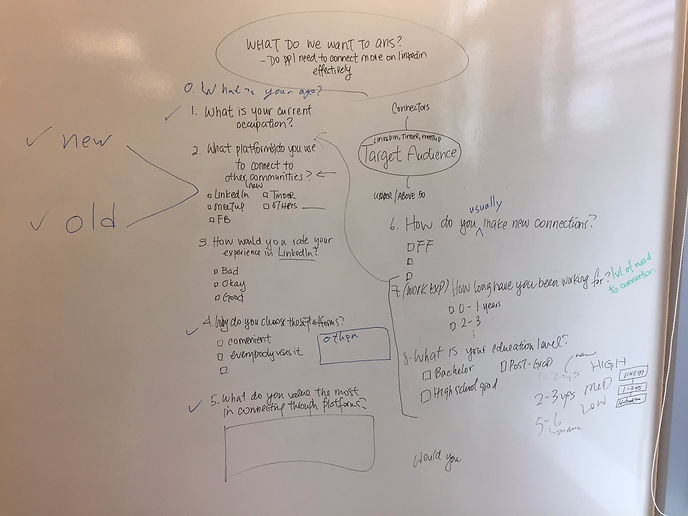 WHAT DO WE WANT TO ANS?
- DO ppl NEED to connect more on linkedin
effectively
0. What is your age?
1. What is your current
occupation?
2. What platform(s) do you use
to connect to
other communities?
new
LinkedIn
TINDER
MEETUP
OTHERS
FB
3. How would you rate your
experience in LinkedIn?
Bad
Okay
Good
4. Why do you choose those platforms?
convenient
everybody uses it
other
5. What do you value the most
in connecting through platforms?
new
old
Connectors
LINKEDIN, TINDER, MEETUP
Target Audience
UNDER/ABOVE 50
usually
6. How do you make new connections?
7. (WORK EXP) How long have you been working for?
lvl of need
to connection
0-1 years
2-3
8. What is your education level?
Bachelor
Post-Grad
High school grad
new
HIGH
2-3 yrs MED
LOW
5-6
1-2 yrs
Would you